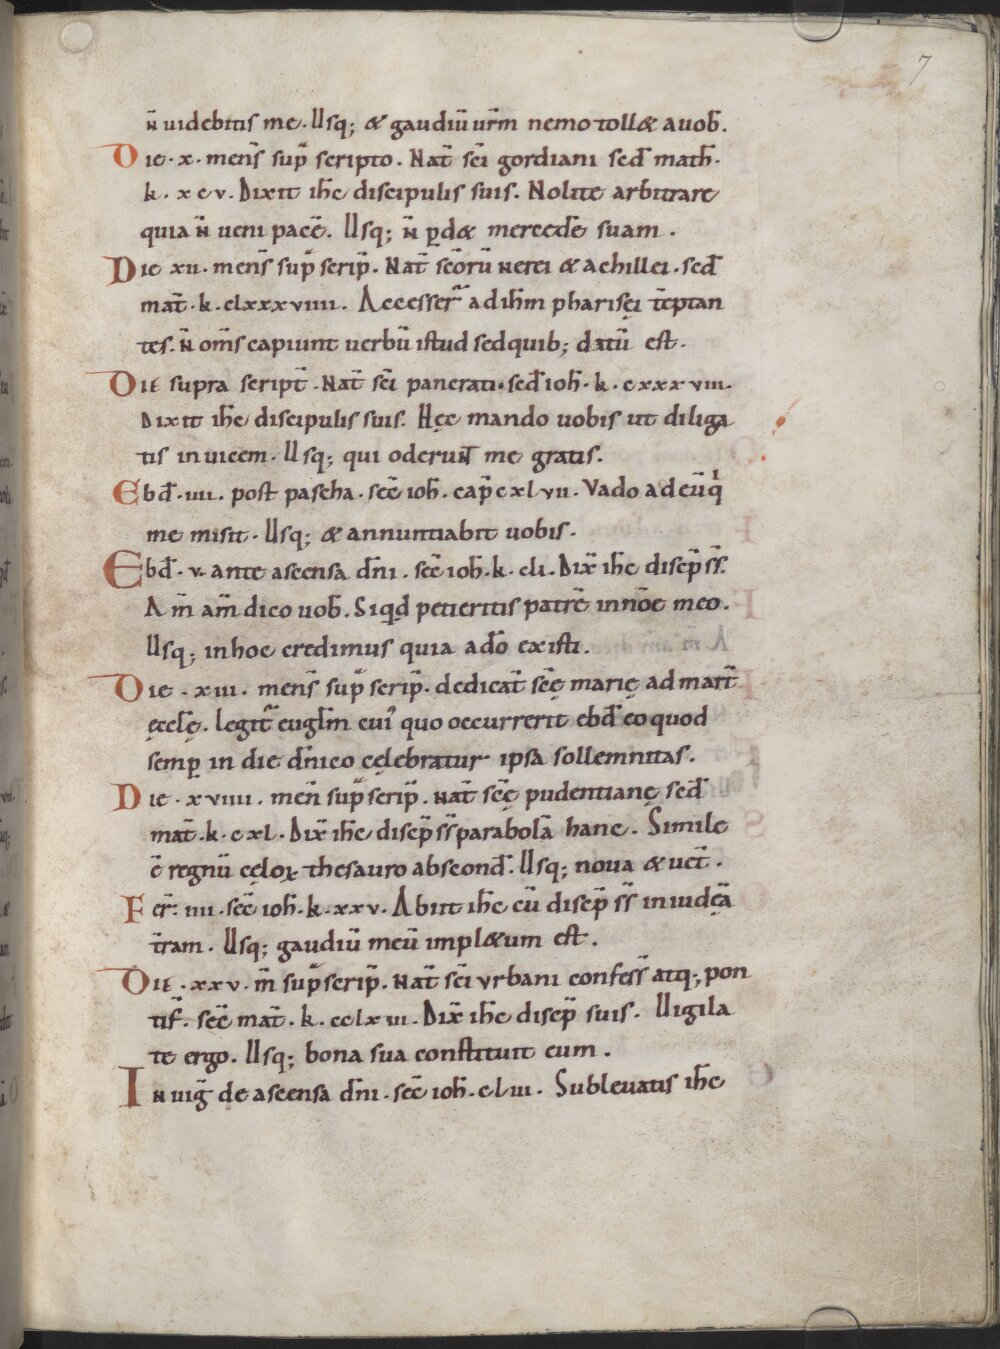 7
n̄ uidebitis me. Usq; & gaudiū ur̄m nemo toll& auob̄.
Die. x. mens̄ sup̄ scripto. Nat̄ sc̄i gordiani sed̄ math̄.
k. xcv. Dixit ih̄c discipulis suis. Nolite arbitrare
quia n̄ ueni pacē. Usq; n̄ p̱d& mercedē suam.
Die xii. mens̄ sup̄ scrip̄. Nat̄ sc̄orū nerei & achillei. sed̄
mat̄. k. clxxxviiii. Accesser̄ ad ih̄m pharisęi tēptan
tes. n̄ om̄s capiunt uerbū istud sed quib; datū est.
Die supra script̄. Nat̄ sc̄i pancrati. sed̄ ioh̄. k. cxxxviii.
Dixit ih̄c discipulis suis. Hęc mando uobis ut diliga
tis inuicem. Usq; qui oderuN̄ me gratis.
Ebd̄. iiii. post pascha. sec̄ ioh̄. cap̄ cxlvii. Vado ad eū q
me misit. Usq; & annuntiabit uobis.
Ebd̄. v. ante ascensa dn̄i. sec̄ ioh̄. k. cli. Dix̄ ih̄c discip̄ ss̄.
Am̄ am̄ dico uob̄. Siqd̄ petieritis patrē in noē meo.
Usq; in hoc credimus quia a dō existi.
Die. xiii. mens̄ sup̄ scrip̄. dedicat̄ sc̄ę marię ad mart̄
ęcclę̄. legit̄ euglm̄ cui quo occurrerit ebd̄ eo quod
semp̱ in die dn̄ico cęlebratur ipsa sollemnitas.
Die. xviiii. men̄ sup̄ scrip̄. Nat̄ sc̄ę pudentianę sed̄
mat̄. k. cxl. Dix̄ ih̄c discep̄ ss̄ parabolā hanc. Simile
ē regnū cęloꝝ thesauro abscond̄. Usq; noua & uet̄.
Fer̄. iiii. sec̄ ioh̄. k. xxv. Abiit ih̄c cū discip̄ ss̄ in iudęā
t̄ram. Usq; gaudiū meū impl&um est.
Die. xxv. m̄ sup̄ scrip̄. Nat̄ sc̄i vrbani confess̄ atq; pon
tif̄. sec̄ mat̄. k. cclxiii. Dix̄ ih̄c discep̄ suis. Uigila
te ergo. Usq; bona sua constituit eum.
In uiḡ de ascensa dn̄i. sec̄ ioh̄. clvi. Subleuatis ih̄c